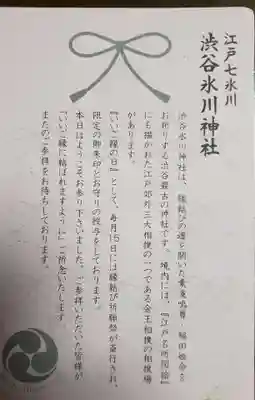 江戸七氷川
渋谷氷川神社
渋谷氷川神社は、縁結びの道を開いた素戔嗚尊 稲田姫命を
お祀りする渋谷最古の神社です。境内には、『江戸名所図絵』
にも描かれた江戸郊外三大相撲の一つである金王相撲の相撲場
があります。
『いいご縁の日』として、毎月15日には縁結び祈願祭が斎行され、
限定の御朱印とお守りの授与をしております。
本日はようこそお参り下さいました。ご参拝いただいた皆様が
『いいご縁に結ばれますように』ご祈念いたします。
またのご参拝をお待ちしております。